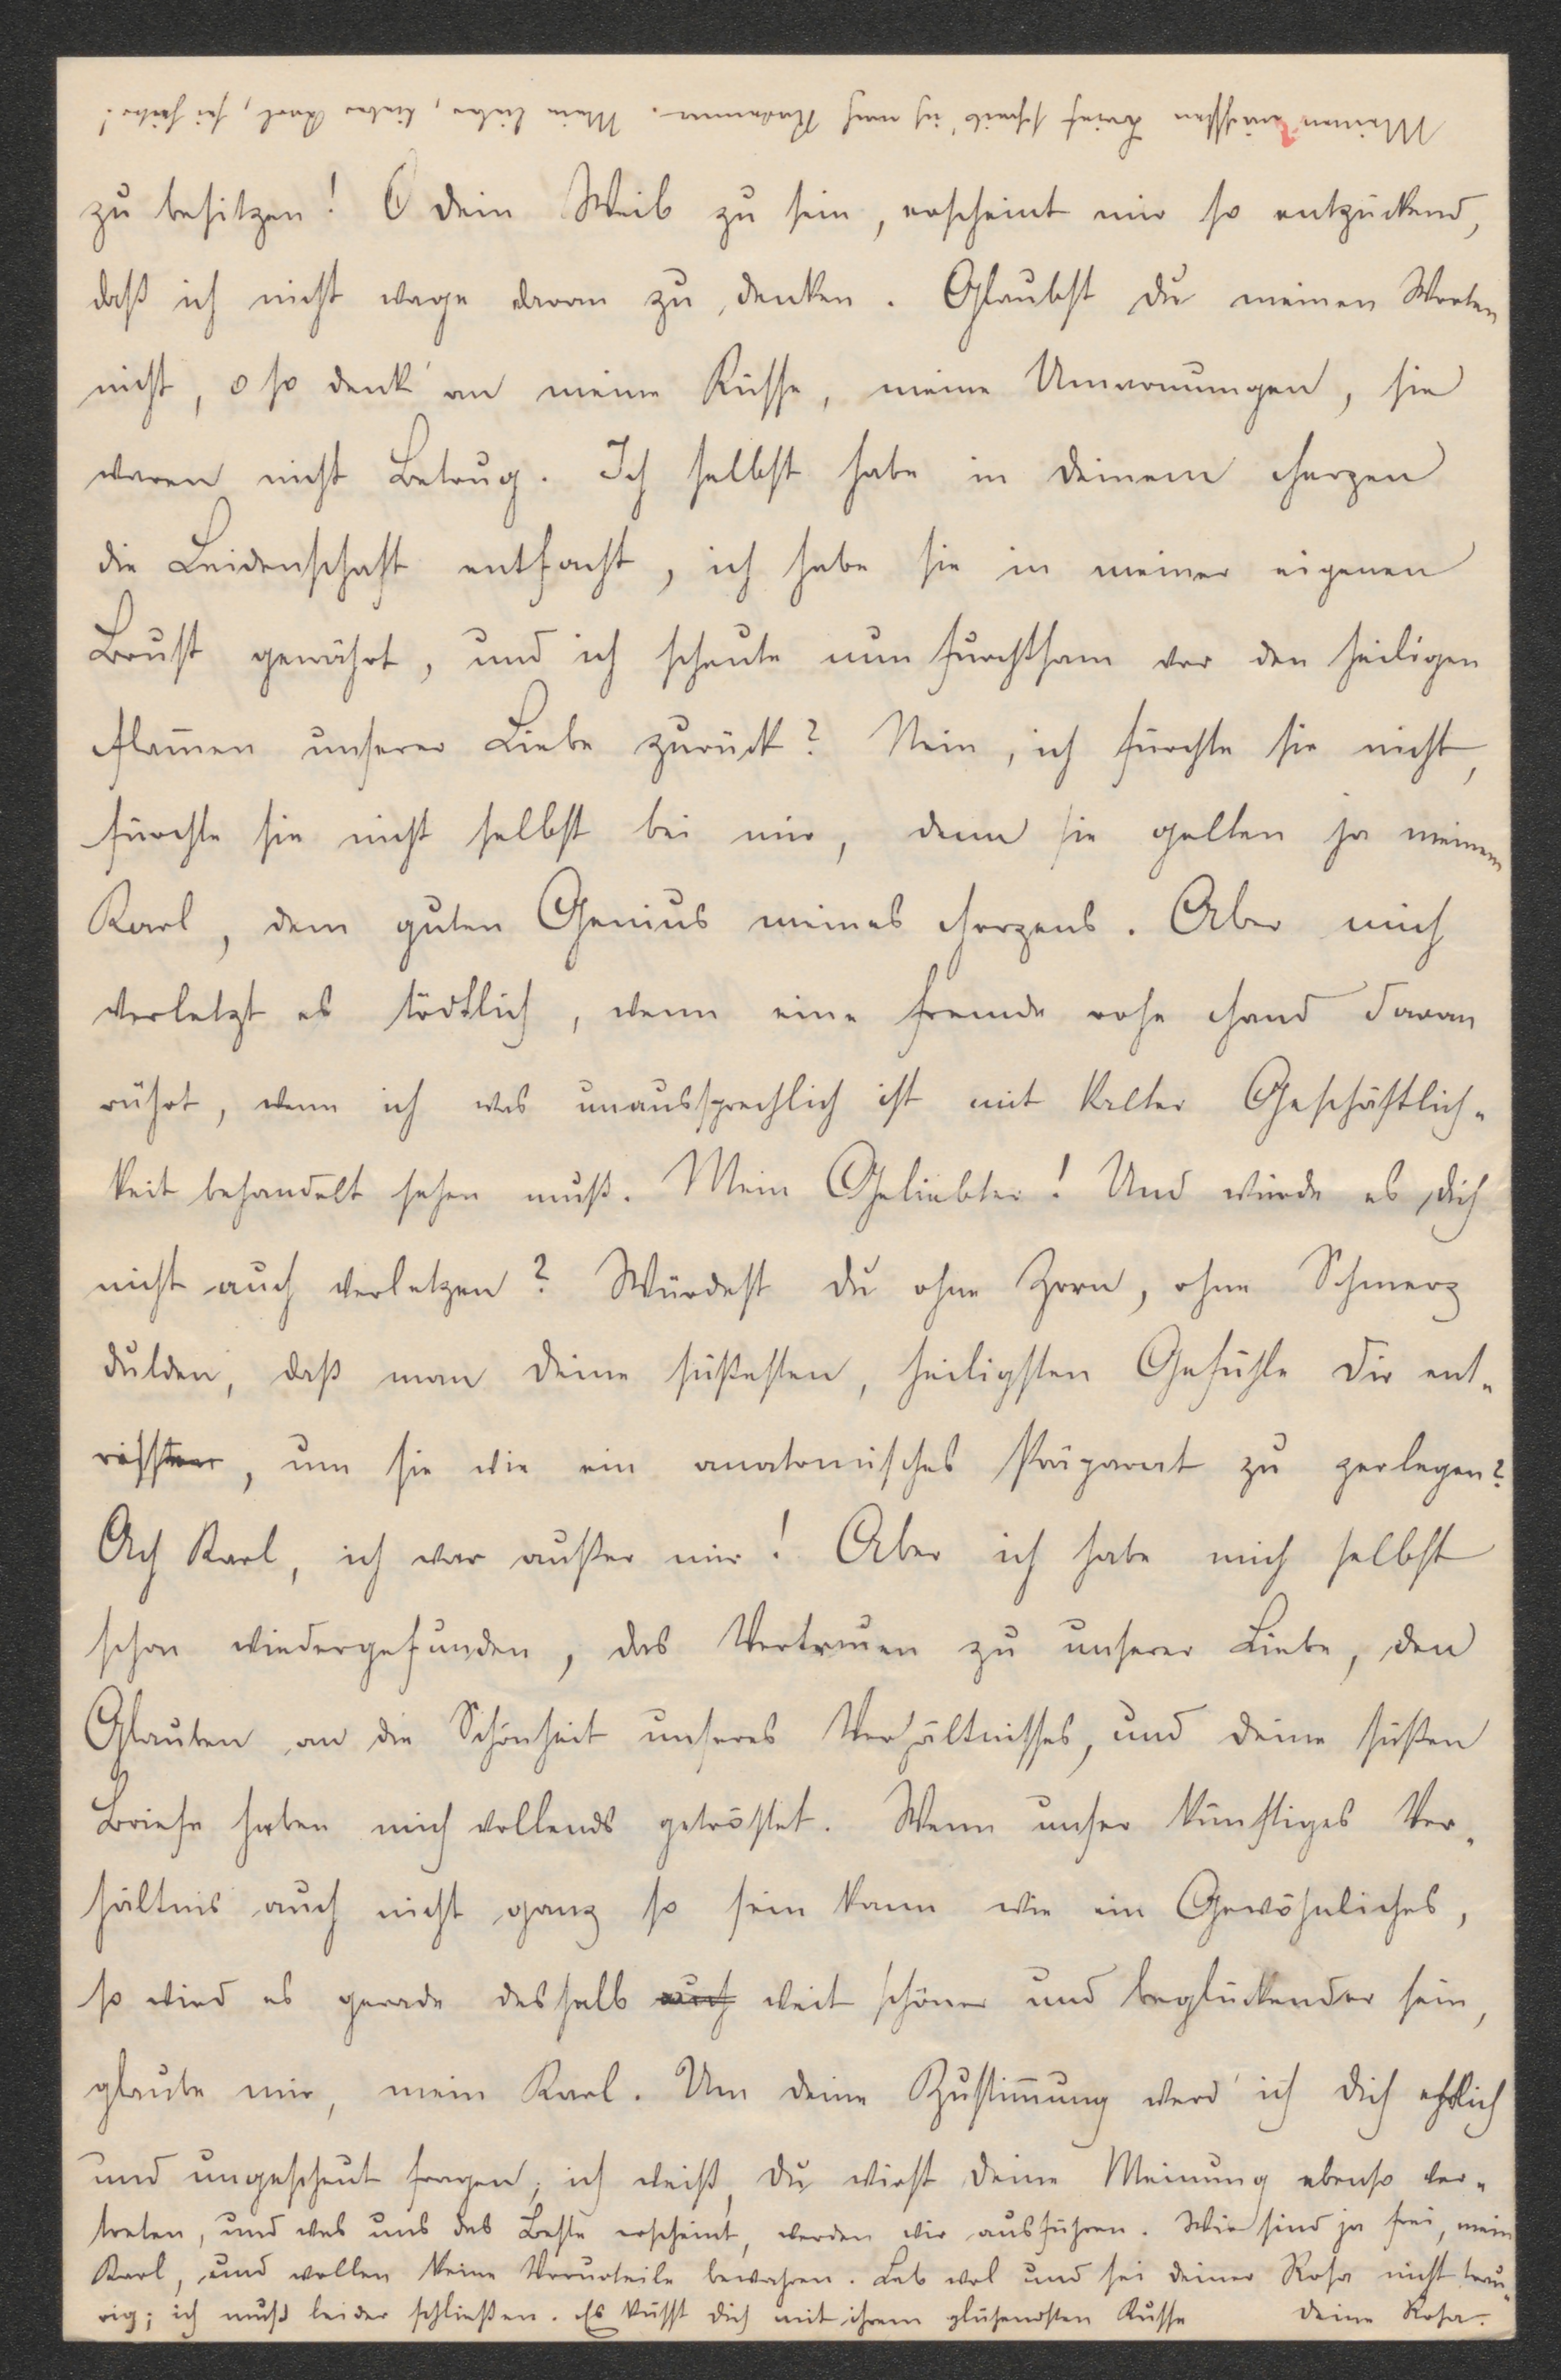 Meinen nächsten Brief schreib' ich nach . Mein lieber, lieber Karl, sei heiter!
zu besitzen! O dein Weib zu sein, erscheint mir so entzückend,
daß ich nicht wage daran zu denken. Glaubst du meinen Worten
nicht, o so denk' an meine Küsse, meine Umarmungen, sie
waren nicht Betrug. Ich selbst habe in deinem Herzen
die Leidenschaft entfacht, ich habe sie in meiner eigenen
Brust genährt, und ich scheute nun furchtsam vor den heiligen
Flam̄en unserer Liebe zurück? Nein, ich fürchte sie nicht,
fürchte sie nicht selbst bei mir, denn sie gelten ja meinem
Karl, dem guten Genius meines Herzens. Aber mich
verletzt es tödtlich, wenn eine fremde rohe Hand daran
rührt, wenn ich was unaussprechlich ist mit kalter Geschäftlich-
keit behandelt sehen muß. Mein Geliebter! Und würde es dich
nicht auch verletzen? Würdest du ohne Zorn, ohne Schmerz
dulden, daß man deine süßesten, heiligsten Gefühle dir ent-
riss, um sie wie ein anatomisches Präparat zu zerlegen?
Ach Karl, ich war außer mir! Aber ich habe mich selbst
schon wiedergefunden, das Vertrauen zu unserer Liebe, den
Glauben an die Schönheit unseres Verhältnisses, und deine süßen
Briefe haben mich vollends getröstet. Wenn unser künftiges Ver-
hältnis auch nicht ganz so sein kann wie ein Gewöhnliches,
so wird es gerade deshalb auch weit schöner und beglückender sein,
glaube mir, mein Karl. Um deine Zustim̄ung werd' ich dich ehrlich
und ungescheut fragen; ich weiß, du wirst deine Meinung ebenso ver-
treten, und was uns das Beste erscheint, werden wir ausführen. Wir sind ja frei, mein
Karl, und wollen keine Vorurteile bewahren. Leb wol und sei deiner Rosa nicht trau-
rig; ich muß leider schließen. Es küsst dich mit ihrem glühendsten Kusse deine Rosa.